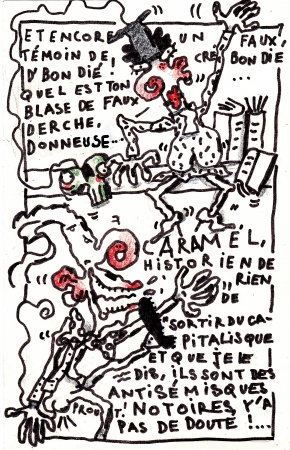 ET ENCORE UN FAUX
TÉMOIN DE, CRE, BON DIÉ
D'BON DIÉ! ...
QUEL EST TON
BLASE DE FAUX
DERCHE,
DONNEUSE...
ARAMÉL,
HISTORIEN DE
RIEN,
DE
"SORTIR DU CA-
PITALISQUE
ET QUE JE LE
DIS, ILS SONT DES
ANTISÉMISQUES
PROUT! NOTOIRES, Y'A
PAS DE DOUTE!...